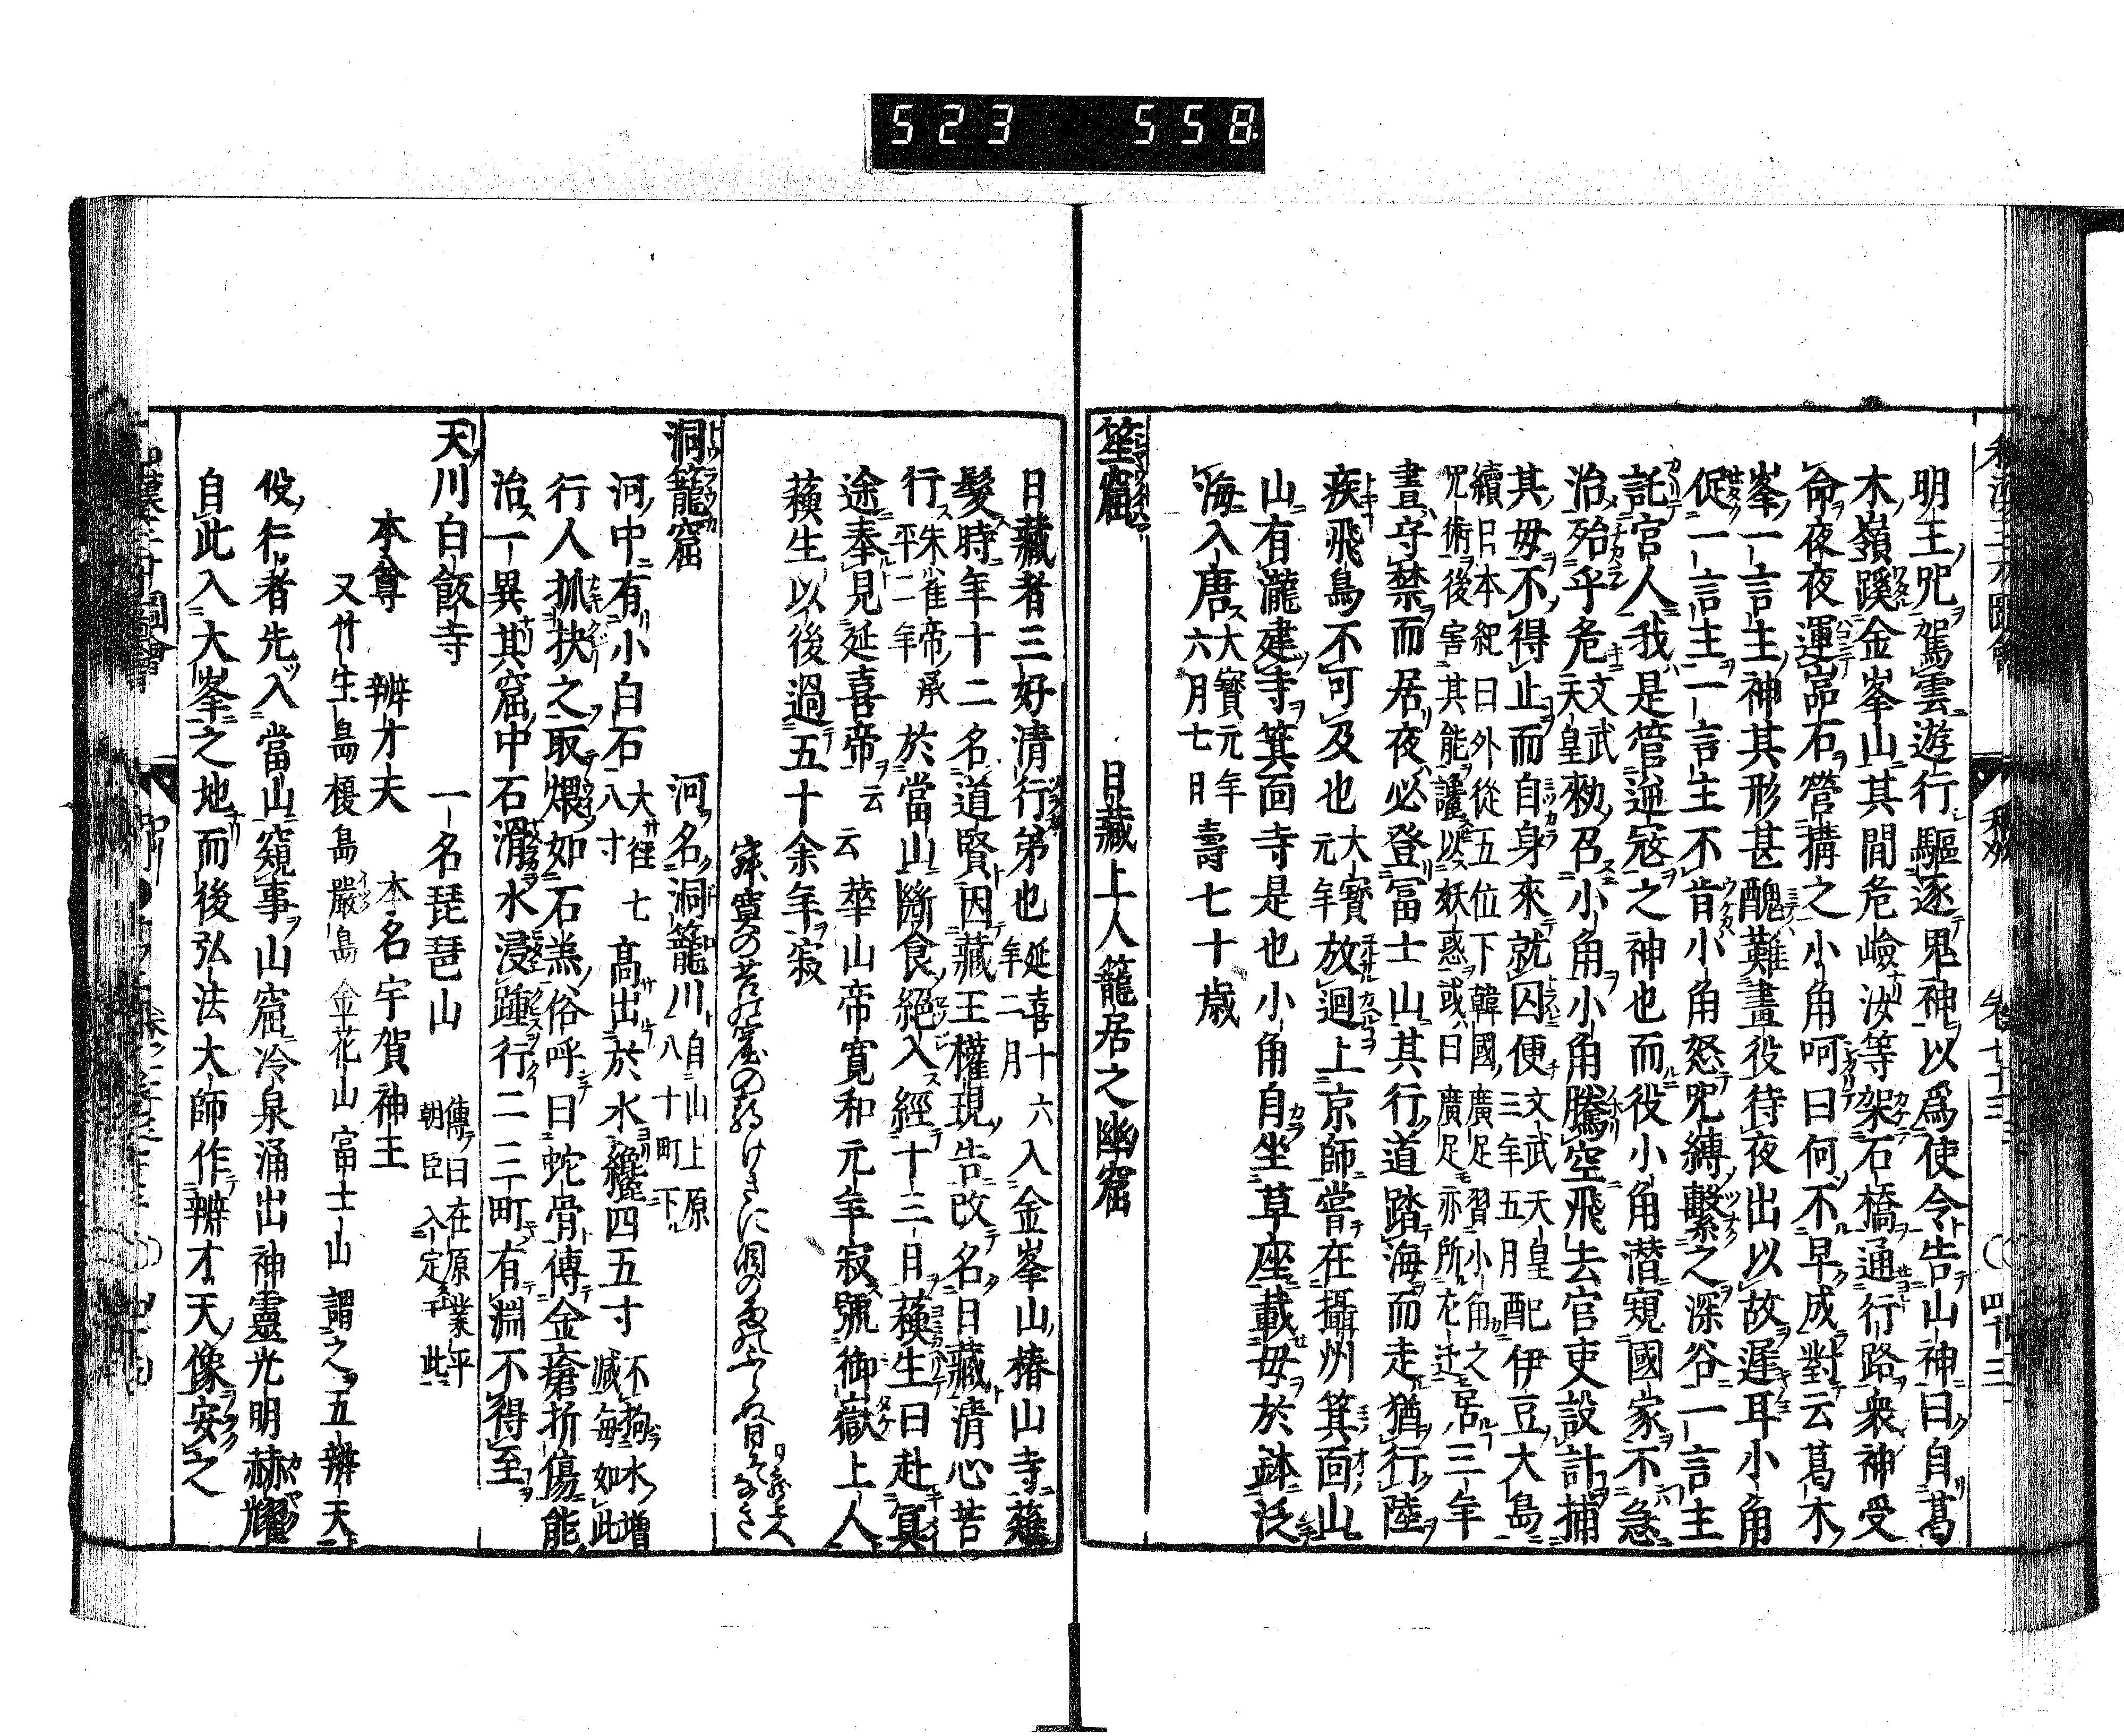 523 558
明王咒駕雲遊行驅逐鬼神以爲使令告山神曰自葛
木嶺蹊金峯山其間危嶮汝等架石橋通行路衆神受
命夜夜運嵓石營構之小角呵曰何不早成對云葛木
峯一言主神其形甚醜難晝役待夜出以故遲耳小角
促一言主一言主不肯小角怒咒縛繫之深谷一言主
託宮人我是管逆寇之神也而役小角潜窺國家不急
治殆乎危文武天皇勅召小角小角騰空飛去官吏設計捕
其母不得止而自身來就囚便文武天皇三年五月配伊豆大島
續日本紀曰外從五位下韓國廣足習小角之咒術後害其能讒以妖惑或曰廣足亦所左迁居三年
晝守禁而居夜必登冨士山其行道踏海而走猶行陸
疾飛鳥不可及也大寳元年放迴上京師嘗在攝州箕面山
山有瀧建寺箕面寺是也小角自坐草座載母於鉢泛
海入唐大寳元年六月七日壽七十歳
笙窟 日藏上人籠居之幽窟
日藏者三好清行弟也延喜十六年二月入金峯山椿山寺薙
髮時年十二名道賢因藏王權現告改名日藏清心苦
行朱雀帝承平二年於當山斷食絕入經十三日蘓生曰赴冥
途奉見延喜帝云云華山帝寛和元年寂號御嶽上人
蘓生以後過五十余年寂
洞籠窟 河名洞籠川自山上原八十町下
河中有小白石大サ徑七八寸高出於水纔四五寸不拘水増减毎如此
行人抓抉之取煨如石羔俗呼曰蛇骨傳金瘡折傷能
治一異其窟中石滑水浸踵行二三町有淵不得至
天川白飯寺 一名琵琶山 傳曰在原業平朝臣入定于此
本尊 辨才天 本名宇賀神王
又竹生島榎島嚴島金花山富士山謂之五辨天
役仁者先入當山窺事山窟冷泉涌出神靈光明赫耀
自此入大峯之地而後弘法大師作辨才天像安之